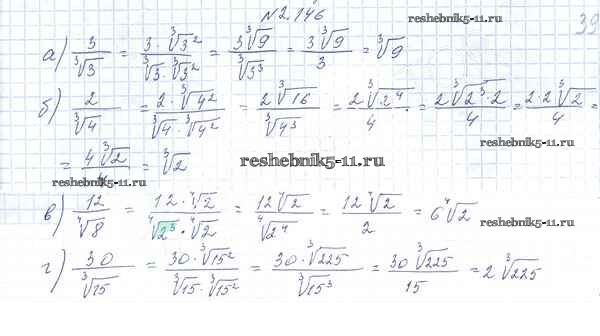 №2.146
reshebnik5-11.ru
39
а) 3/∛3 = 3·∛3²/(∛3·∛3²) = 3∛9/∛3³ = 3∛9/3 = ∛9
б) 2/∛4 = 2·∛4²/(∛4·∛4²) = 2∛16/∛4³ = 2∛2⁴/4 = 2∛(2³·2)/4 = 2·2∛2/4 =
= 4∛2/4 = ∛2
reshebnik5-11.ru
reshebnik5-11.ru
reshebnik5-11.ru
в) 12/∜8 = 12·∜2/(∜2³·∜2) = 12∜2/∜2⁴ = 12∜2/2 = 6∜2
reshebnik5-11.ru
г) 30/∛15 = 30·∛15²/(∛15·∛15²) = 30·∛225/∛15³ = 30∛225/15 = 2∛225